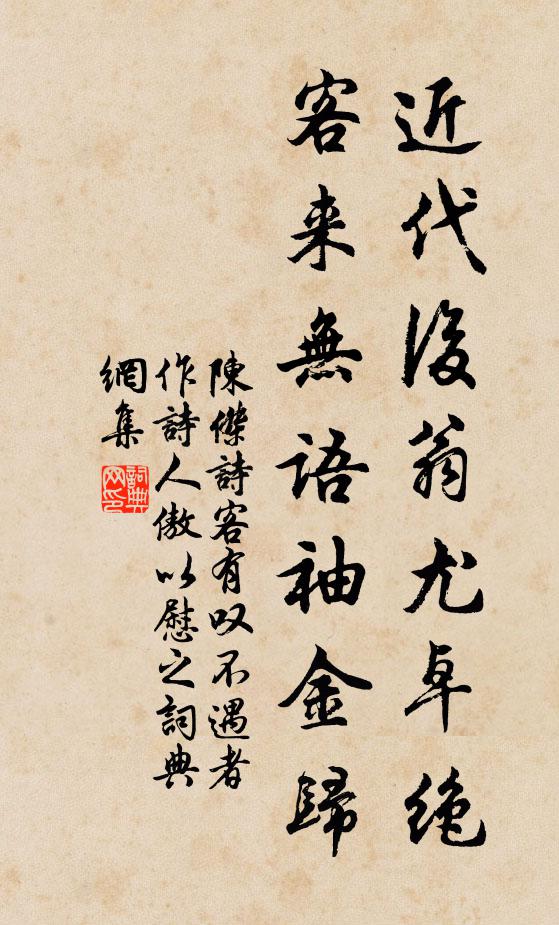 近代後翁尤卓絶
客来無語袖金歸
陳傑詩客有叹不遇者
作詩人傲以慰之詞典
網集
詞典網印